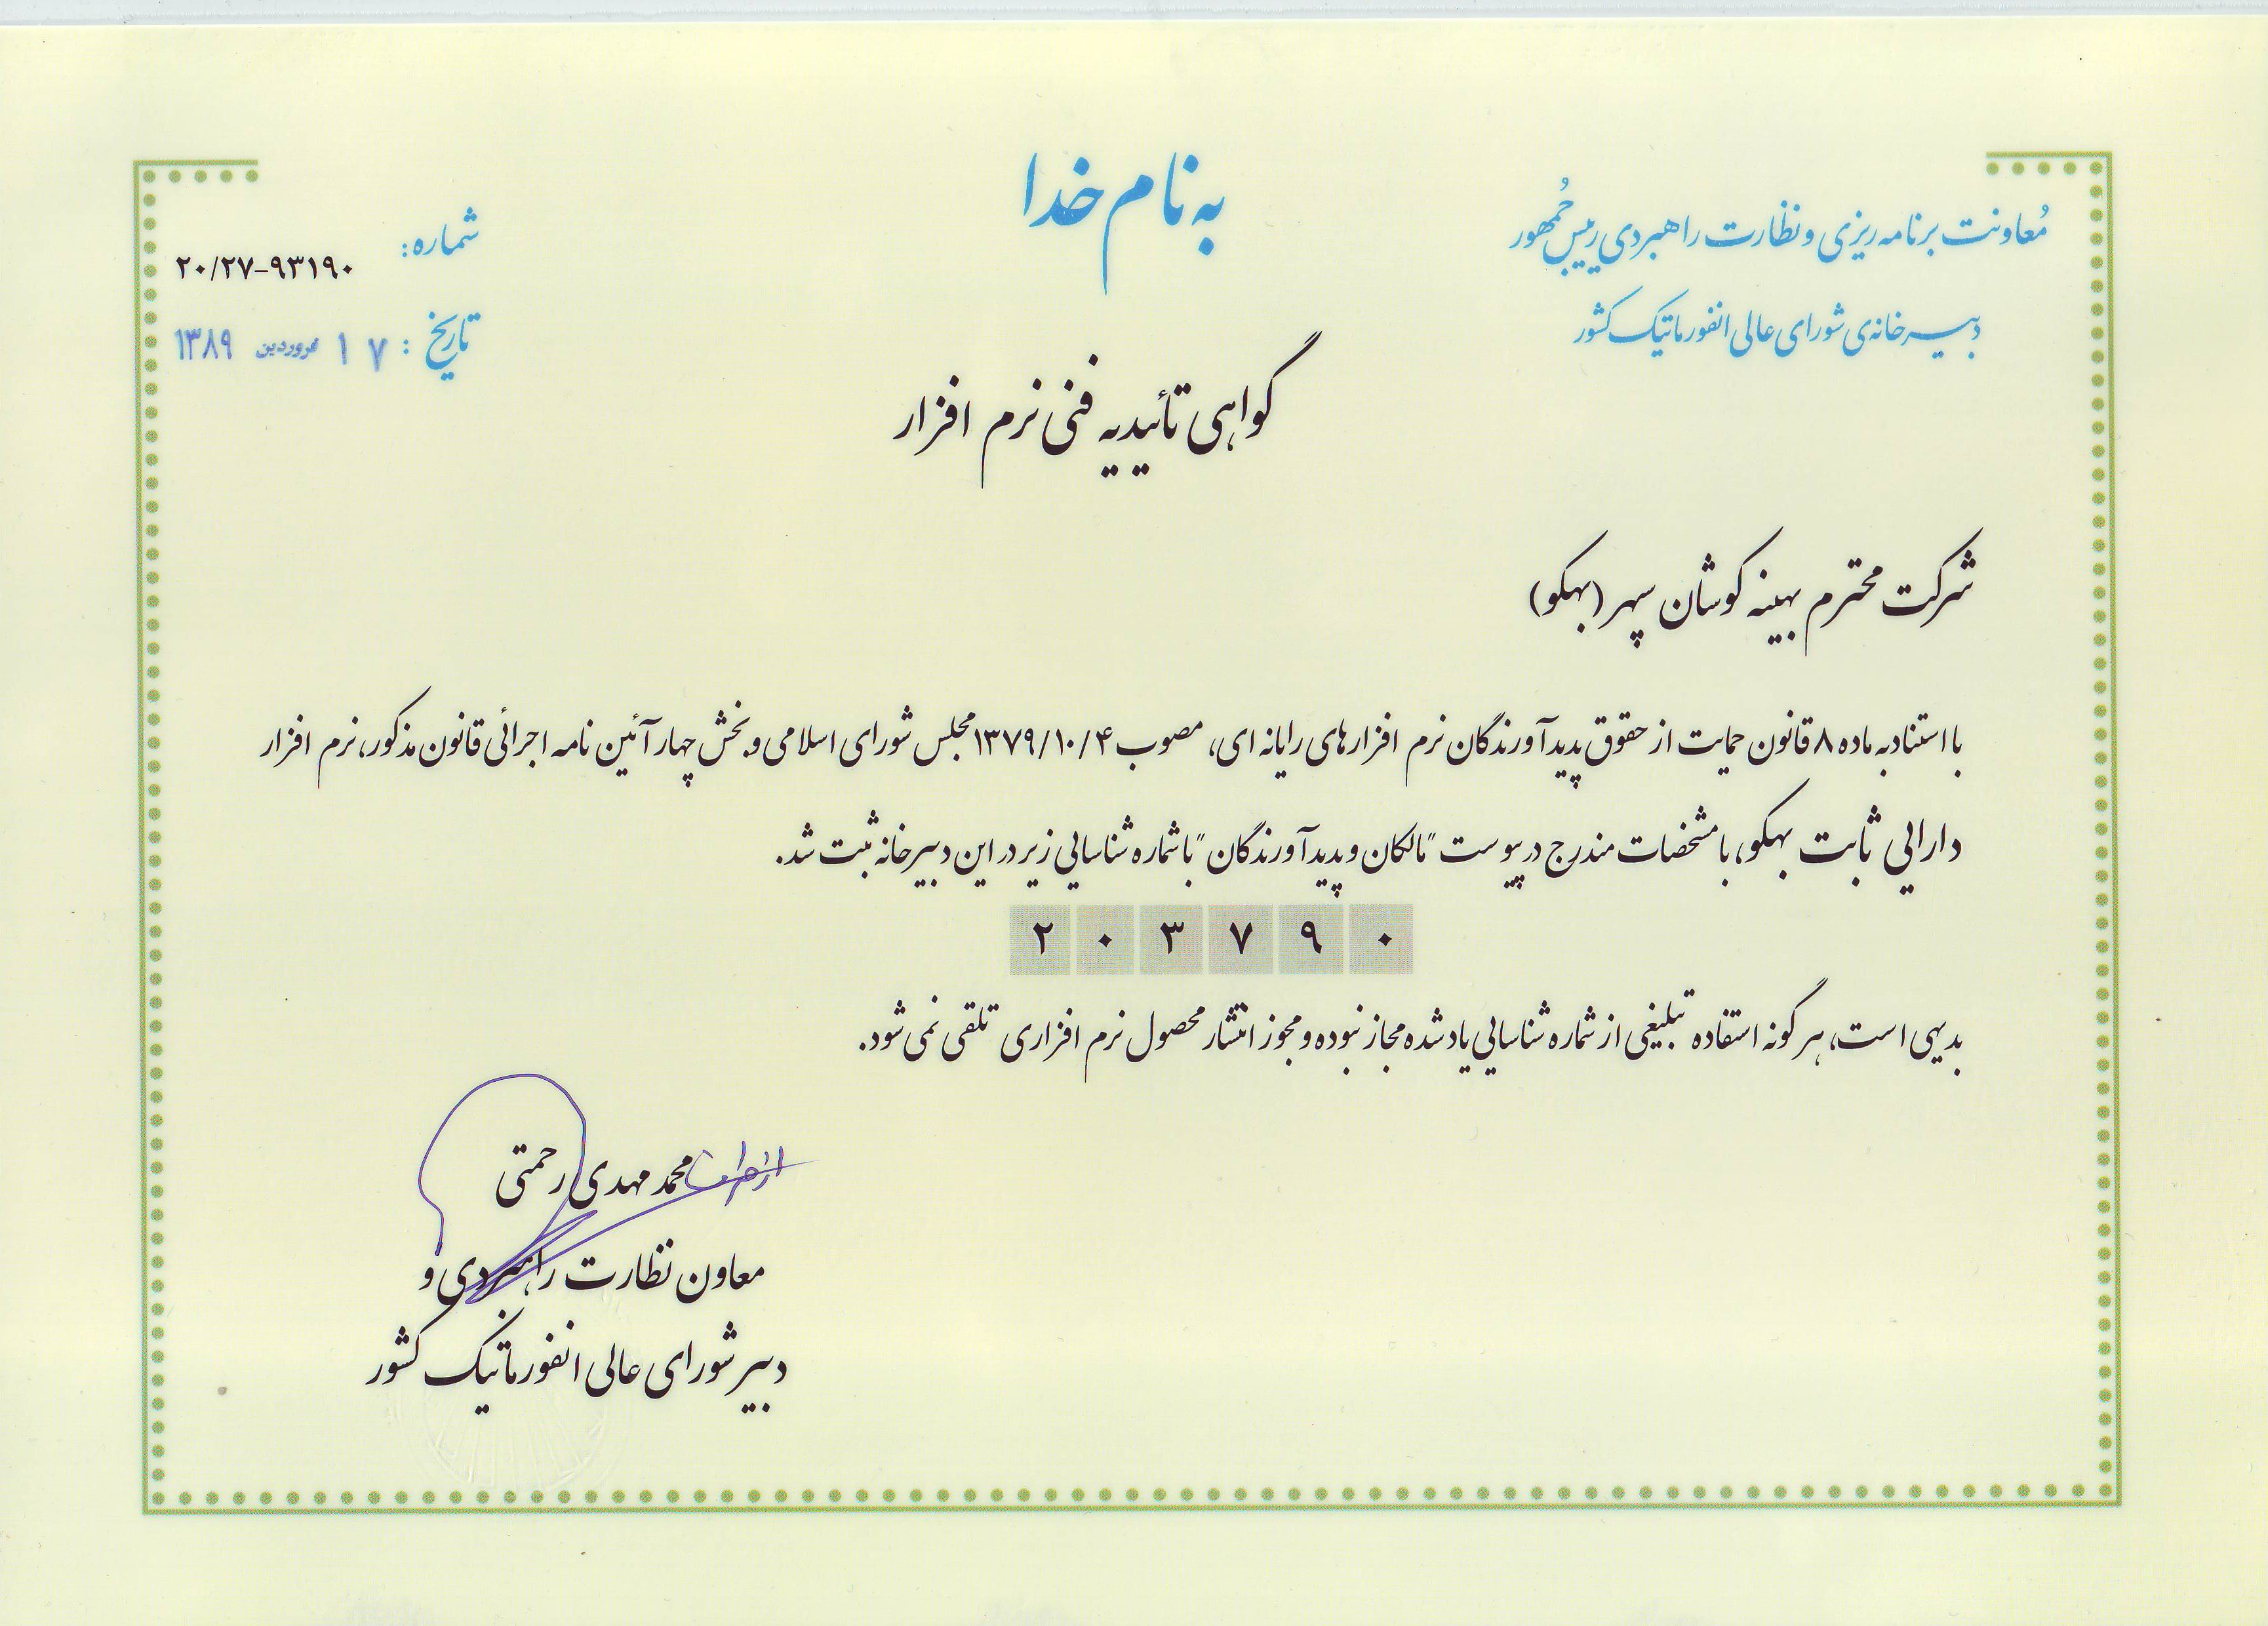 به نام خدا
مُعاونت برنامه ریزی و نظارت راهبردی رییس جُمهور
دبیرخانه‌ی شورای عالی انفورماتیک کشور
شماره: ۲۰/۲۷-۹۳۱۹۰
تاریخ: ۱۷ فروردین ۱۳۸۹
گواهی تأییدیه فنی نرم افزار
شرکت محترم بهینه کوشان سپهر (بهکو)
با استناد به ماده ۸ قانون حمایت از حقوق پدیدآورندگان نرم افزارهای رایانه ای، مصوب ۱۳۷۹/۱۰/۴ مجلس شورای اسلامی و بخش چهار آئین نامه اجرائی قانون مذکور، نرم افزار
دارایی ثابت بهکو، با مشخصات مندرج در پیوست "مالکان و پدیدآورندگان" با شماره شناسایی زیر در این دبیرخانه ثبت شد.
۲۰۳۷۹۰
بدیهی است، هرگونه استفاده تبلیغی از شماره شناسایی یاد شده مجاز نبوده و مجوز انتشار محصول نرم افزاری تلقی نمی شود.
از طرف محمد مهدی رحمتی
معاون نظارت راهبردی و
دبیر شورای عالی انفورماتیک کشور